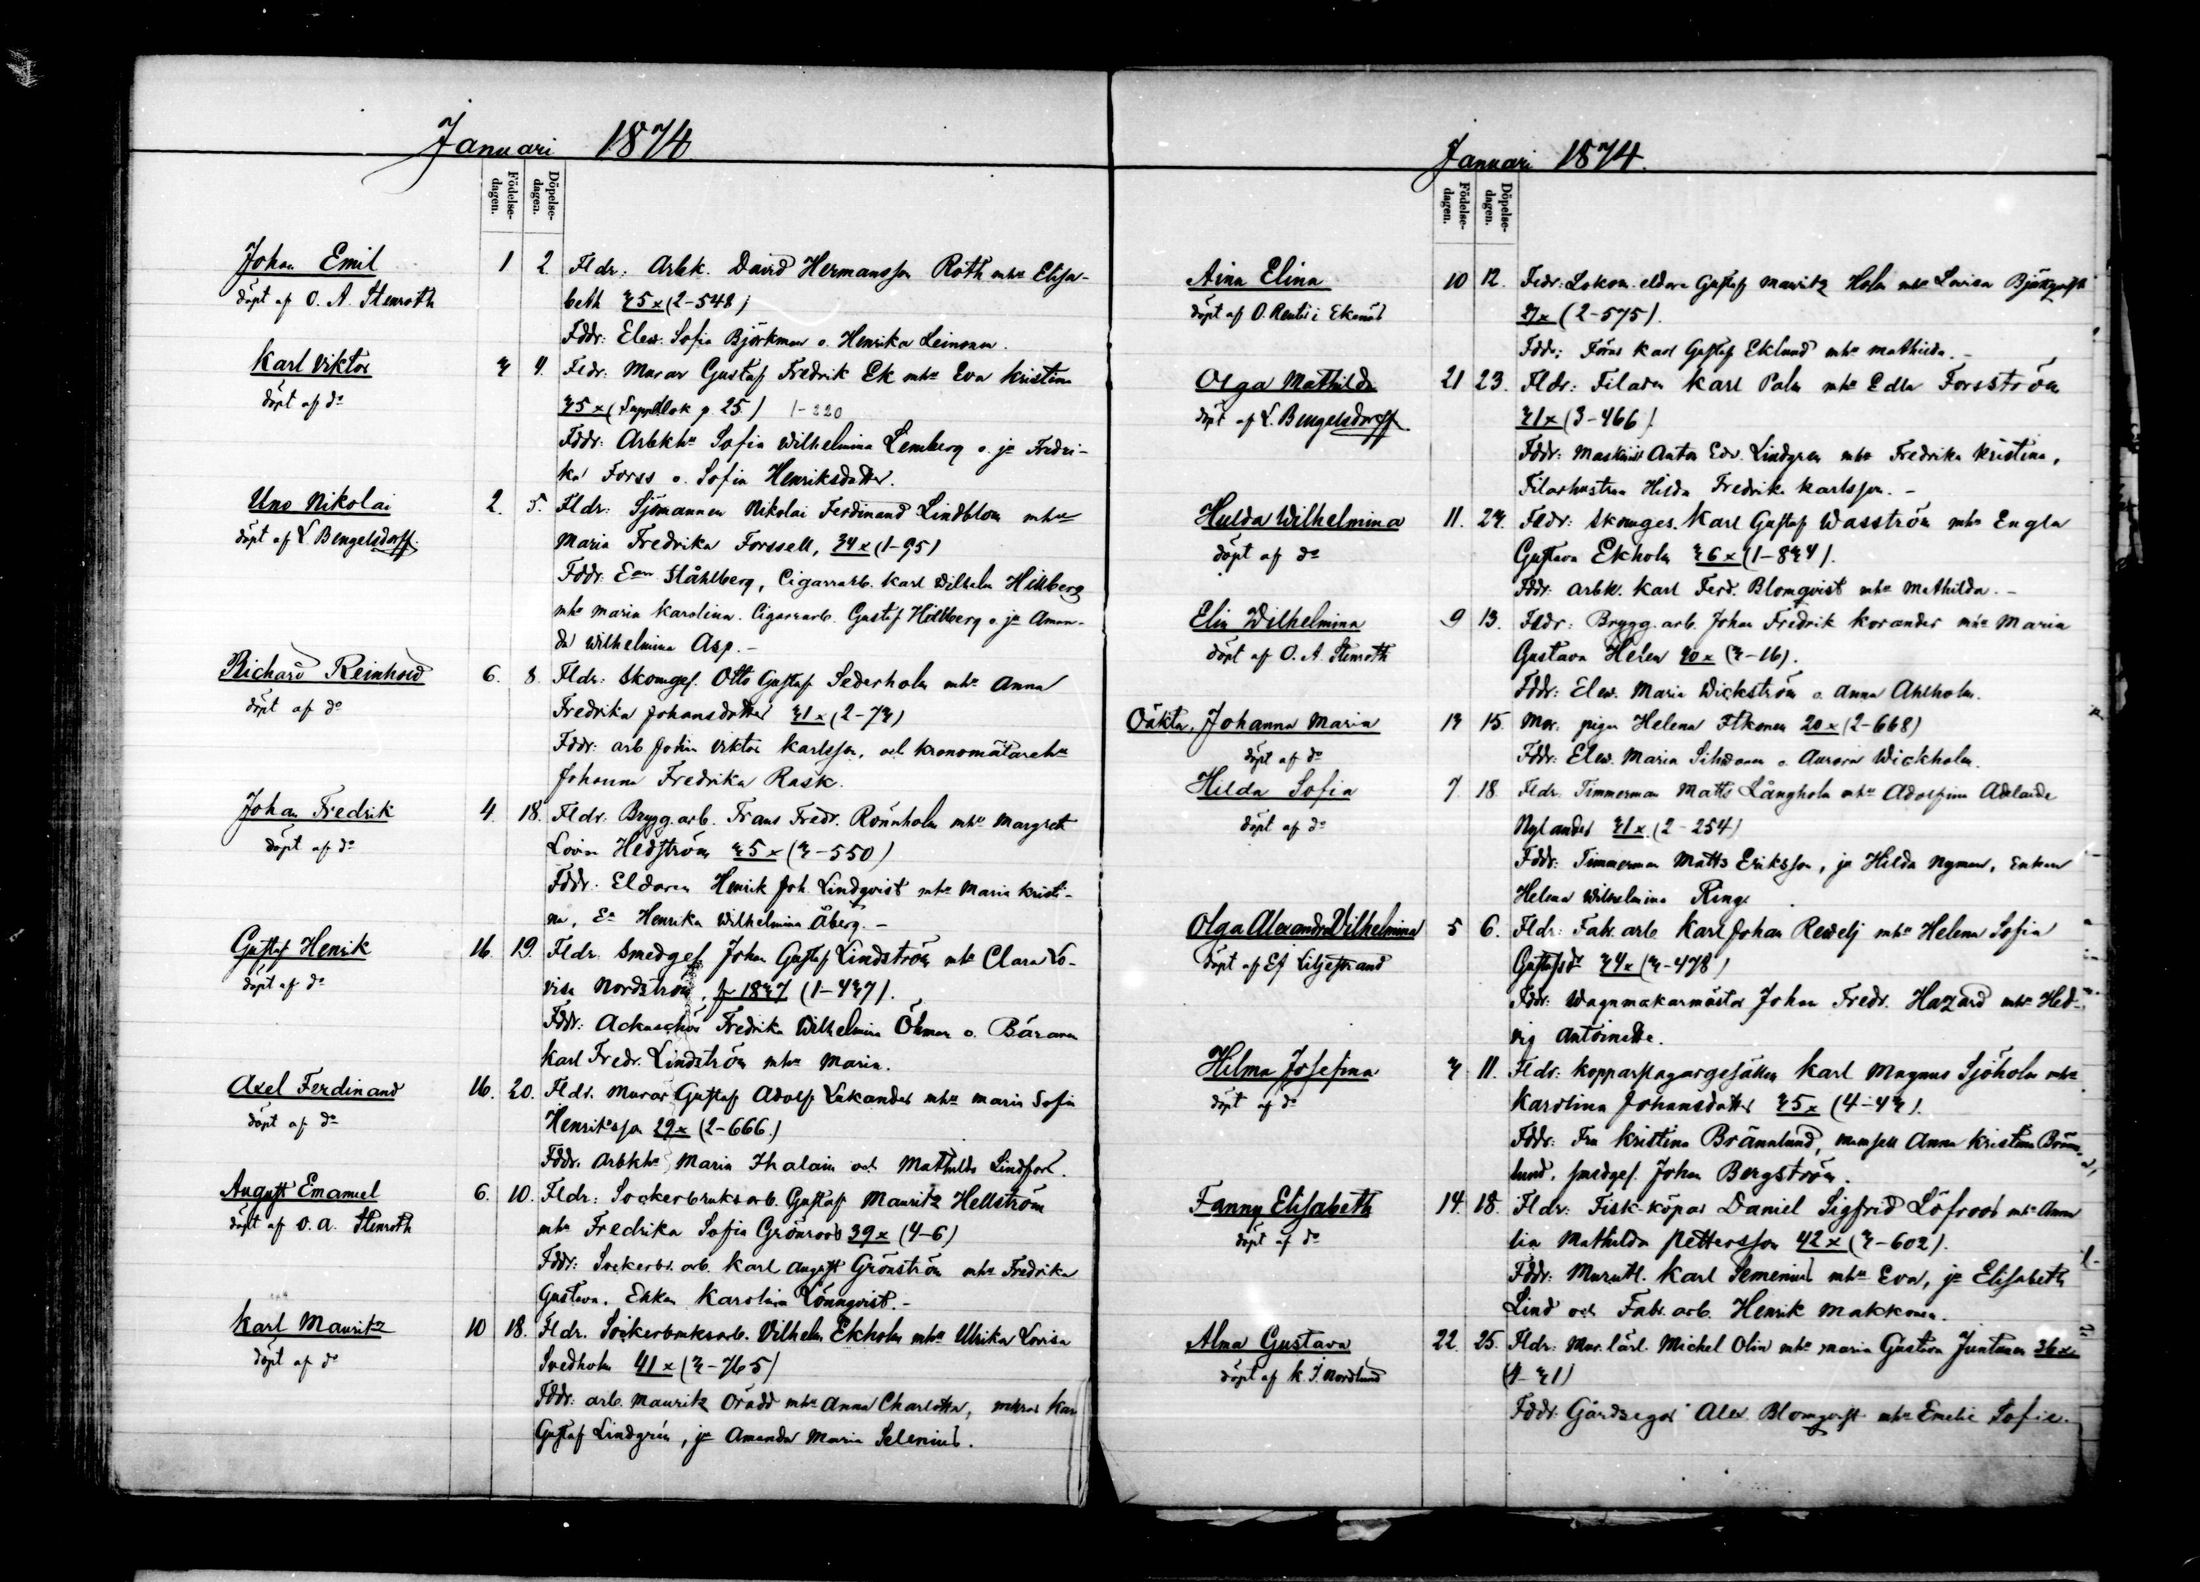 Januari 1874.
Födelse-
dagen.
Döpelse-
dagen.
Johan Emil 1 2 Fldr: Arbk. David Hermansson Roth mhu Elisa-
döpt af O. A. Stenroth beth 35 x (2-548)
Fddr: Elev. Sofia Björkman o. Henrika Leinonen.
Karl Viktor 3 4. Fldr: Murar Gustaf Fredrik Ek mhu Eva Kristina
döpt af do 35 x (Supplbok p. 25.) 1-220
Fddr: Arbkhu Sofia Wilhelmina Lemberg o. ja Fredri-
ka Forss o. Sofia Henriksdotter.
Uno Nikolai 2. 5. Fldr: Sjömannen Nikolai Ferdinand Lindblom mhu
döpt af L. Bengelsdorff. Maria Fredrika Forssell, 34 x (1-95)
Fddr: Ståhlberg, Cigarrarb. Karl Wilhelm Hillberg
mhu Maria Karolina. Cigarrarb. Gustaf Hillberg o. ja Aman-
da Wilhelmina Asp. -
Richard Reinhold 6. 8. Fldr: Skomges. Otto Gustaf Sederholm mhu Anna
döpt af do Fredrika Johansdotter 31 x (2-73)
Fddr: arb Johan Viktor Karlsson, och kronomätarehu
Johanna Fredrika Rask.
Johan Fredrik 4. 18. Fldr: Brygg. arb. Frans Fredr. Rönnholm mhu Margret
döpt af do Lovisa Hedström 35 x (3-550)
Fddr: Eldaren Henrik Joh. Lindqvist mhu Maria Kristi-
na, Ea Henrika Wilhelmina Åberg. -
Gustaf Henrik 16. 19. Fldr. Smedges Johan Gustaf Lindström mhu Clara Lo-
döpt af do visa Nordström, f. 1837 (1-437).
Fddr: Fredrika Wilhelmina Öhman o. Bäraren
Karl Fredr. Lindström mhu Maria.
Axel Ferdinand 16. 20. Fldr. Murar Gustaf Adolf Lukander mhu Maria Sofia
döpt af do Henriksson 29 x (2-666.)
Fddr. Arbkhu Maria Ihalain och Mathilda Lindfors.
August Emanuel 6. 10. Fldr: Sockerbruksarb. Gustaf Mauritz Hellström
döpt af O. A. Stenroth mhu Fredrika Sofia Grönroos 39 x (4-6)
Fddr: Sockerbr. arb. Karl August Grönström mhu Fredrika
Gustava. Enkan Karolina Lönnqvist. -
Karl Mauritz 10 18. Fldr. Sockerbruksarb. Vilhelm Ekholm mhu Ulrika Lovisa
döpt af do Svedholm 41 x (3-765)
Fddr: arb. Mauritz Orädd mhu Anna Charlotta, Karl
Gustaf Lindgrén, ja Amanda Maria Selenius.
Januari 1874.
Födelse-
dagen.
Döpelse-
dagen.
Aina Elina 10 12. Fldr: Lokom. eldare Gustaf Mauritz Holm mhu Lovisa Björkqvist
döpt af O. Renli i Ekenäs 27 x (2-575).
Fddr: Karl Gustaf Eklund mhu Mathilda. -
Olga Mathilda 21 23. Fldr: Filaren Karl Palm mhu Edla Forsström
döpt af L. Bengelsdorff 31 x (3-466).
Fddr: Maskinist Anton Edv. Lindgren mhu Fredrika Kristina,
Filarhustrun Hilda Fredrika Karlsson. -
Hulda Wilhelmina 11. 23. Fldr: Skomges. Karl Gustaf Wasström mhu Engla
döpt af do Gustava Ekholm 36 x (1-834).
Fddr: arbk. Karl Ferd. Blomqvist mhu Mathilda. -
Elin Wilhelmina 9 13. Fldr: Brygg. arb. Johan Fredrik Korander mhu Maria
döpt af O. A. Stenroth Gustava Helen 40 x (3-16).
Fddr: Elev. Maria Wickström o. Anna Ahlholm.
Oäkta. Johanna Maria 13 15. Mor. pigan Helena Itkonen 20 x (2-668)
döpt af do Fddr: Elev. Maria Sihvonen o. Aurora Wickholm.
Hilda Sofia 7. 18. Fldr. Timmerman Matts Långholm mhu Adolfina Adelaide
döpt af do Nylander 31 x (2-254)
Fddr: Timmerman Matts Eriksson, ja Hilda Nyman, Enkan
Helena Wilhelmina Ring.
Olga Alexandra Vilhelmina 5 6. Fldr: Fabr. arb. Karl Johan Rewelj mhu Helena Sofia
döpt af Ef Liljestrand Gustafsdr 34 x (3-478)
Fddr: Wagnmakarmästar Johan Fredr. Hazard mhu Hed-
vig Antoinette.
Hilma Josefina 3 11. Fldr: Kopparslagargesällen Karl Magnus Sjöholm mhu
döpt af do Karolina Johansdotter 35 x (4-43).
Fddr: Fru Kristina Brännlund, mamsell Anna Kristina Bränn-
lund, smedges. Johan Bergström.
Fanny Elisabeth 14. 18. Fldr: Fisk-köpar Daniel Sigfrid Löfroos mhu Ama
döpt af do lia Mathilda Pettersson 42 x (3-602).
Fddr: Murutl. Karl Semenius mhu Eva, ja Elisabeth
Lind och Fabr. arb. Henrik Makkonen.
Alma Gustava 22. 25. Fldr: Mur. lärl. Michel Olin mhu Maria Gustava Juntunen 36 x
döpt af K. J. Nordlund (4-31)
Fddr: Gårdsegar Alex. Blomqvist mhu Emelie Sofie.